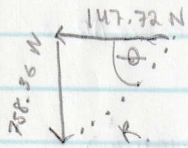 147.72 N
θ
758.36 N
R